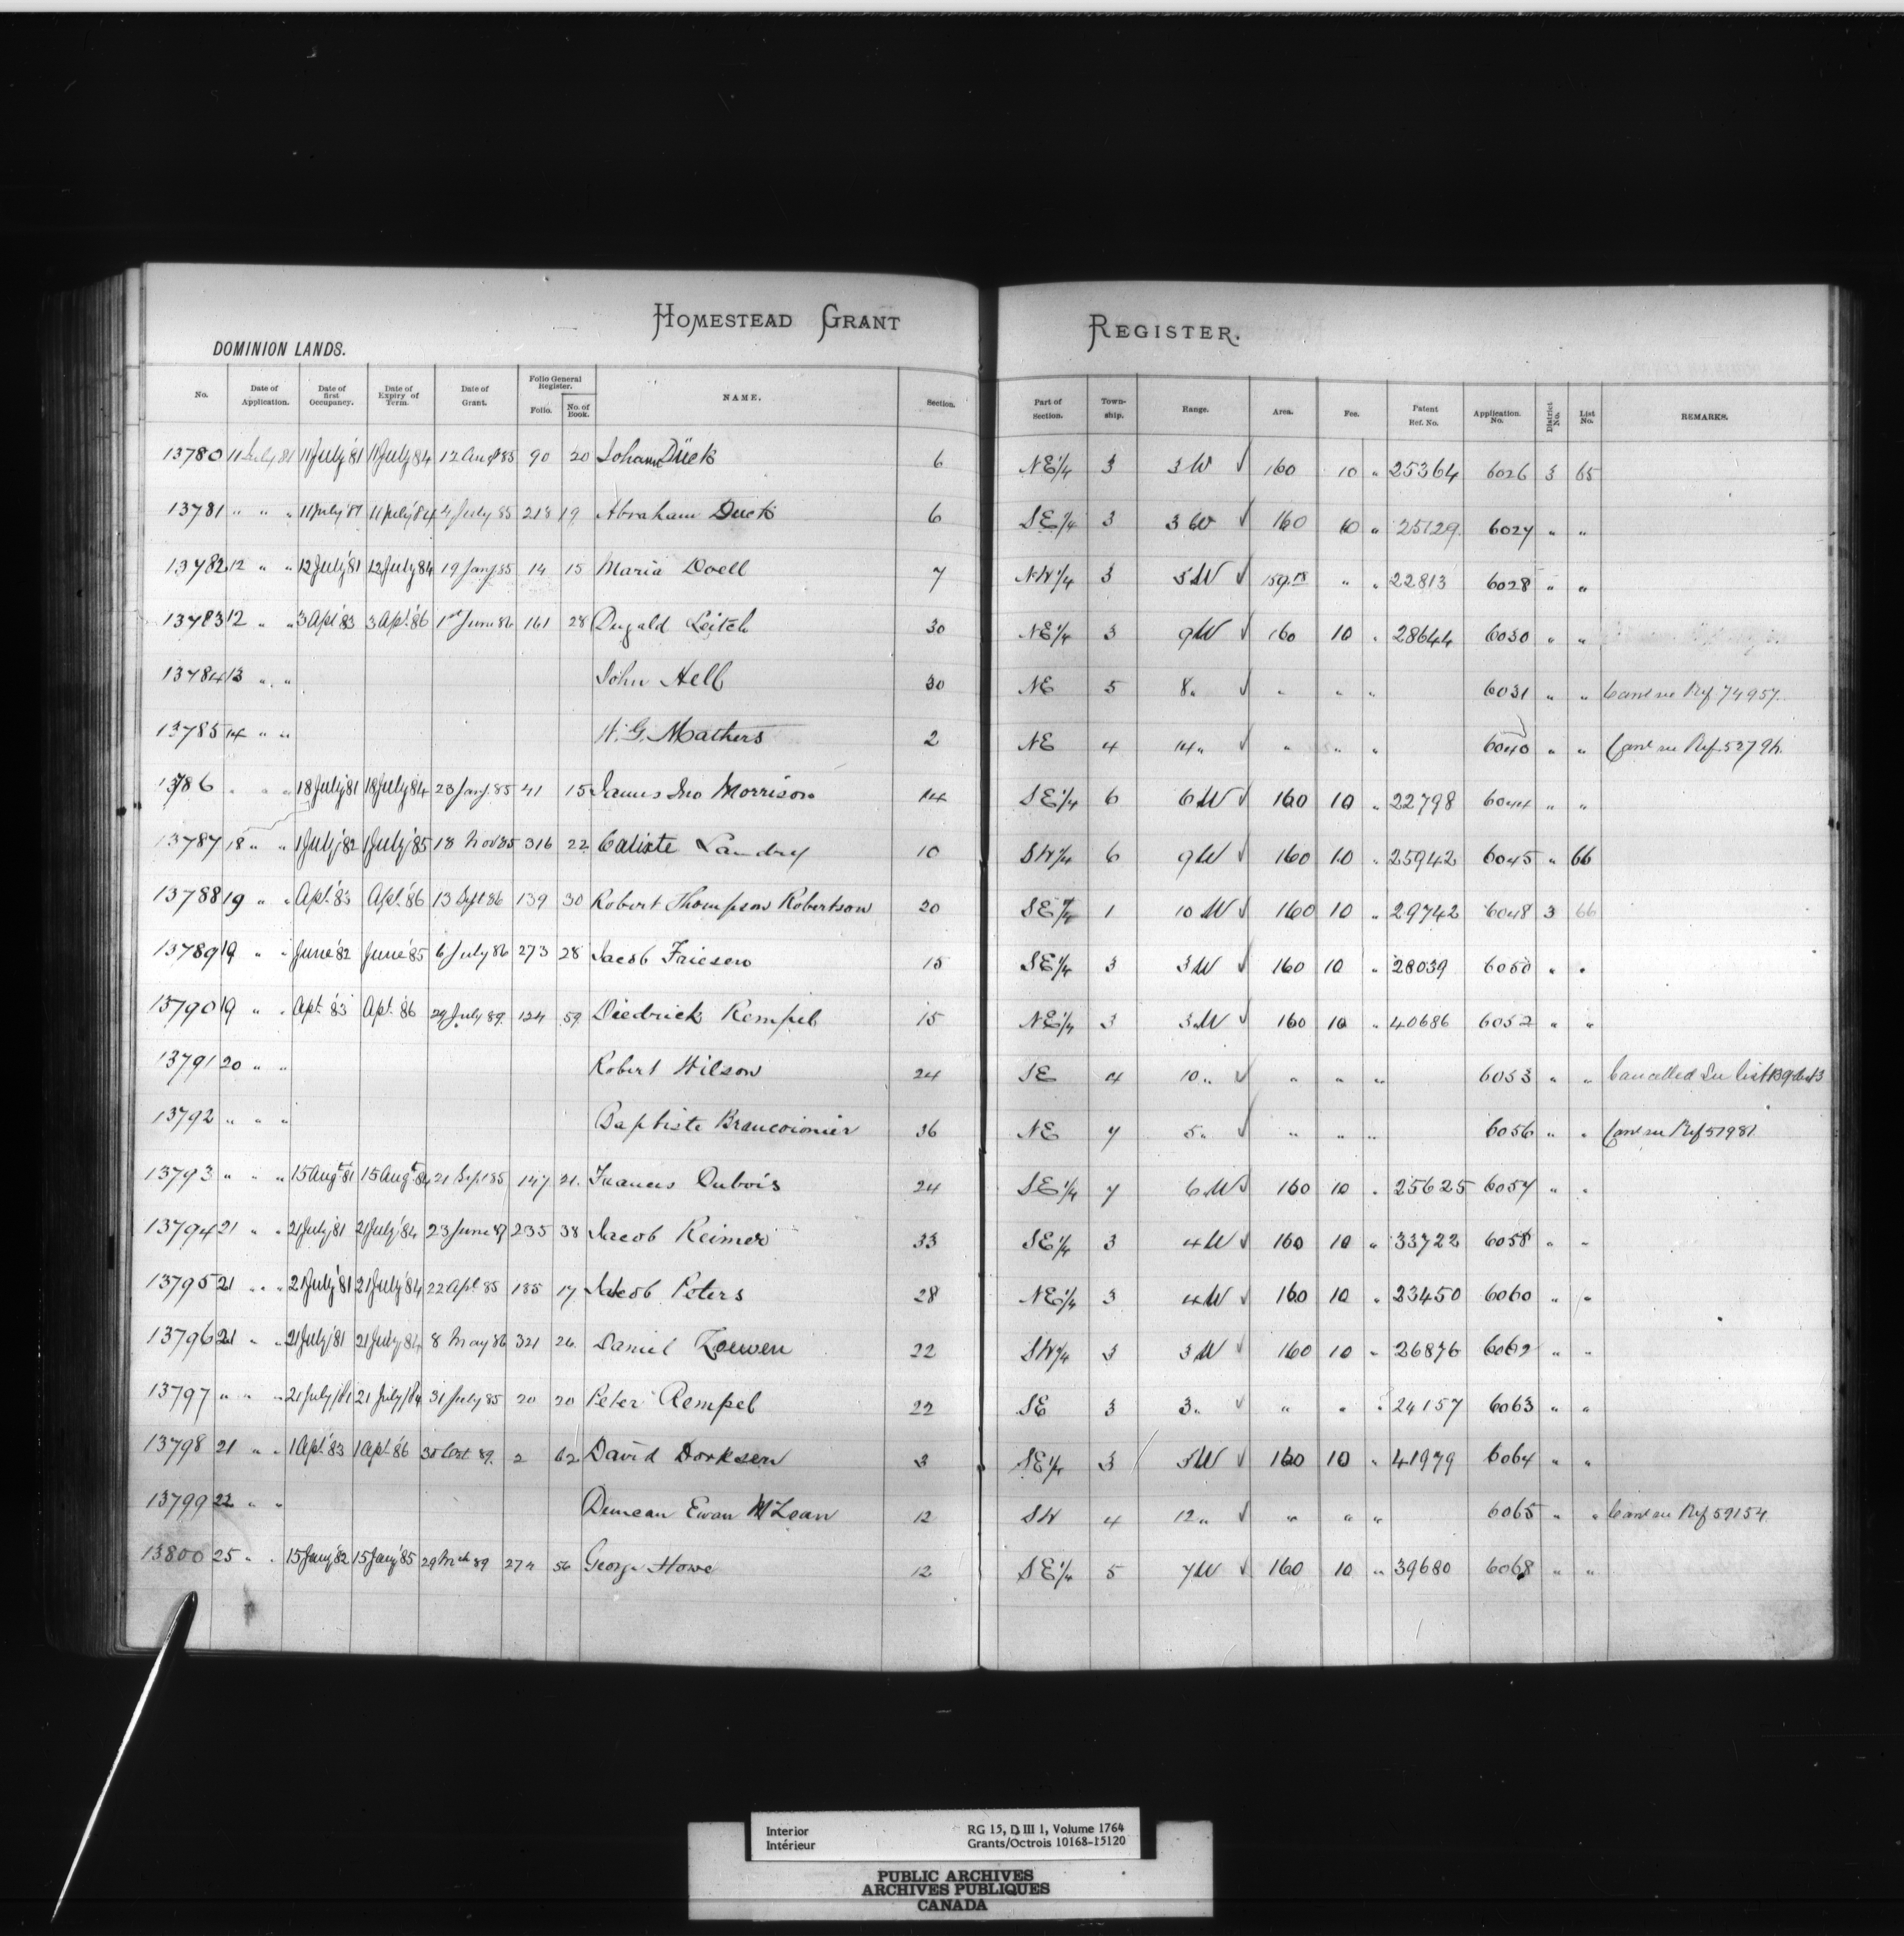 HOMESTEAD GRANT REGISTER.
DOMINION LANDS.
No. Date of Application. Date of first Occupancy. Date of Expiry of Term. Date of Grant. Folio General Register. Folio. No. of Book. NAME. Section. Part of Section. Town-ship. Range. Area. Fee. Patent Ref. No. Application. No. District No. List No. REMARKS.
13780 11 July 81 11 July '81 11 July '84 12 Augt 85 90 20 Johann Dück 6 NE 1/4 3 3 W √ 160 10 " 25364 6026 3 65
13781 " " " 11 July '81 11 July '84 4 July 85 218 19 Abraham Dueck 6 SE 1/4 3 3 W √ 160 10 " 25129 6027 " "
13782 12 " " 12 July '81 12 July '84 19 Jany 85 14 15 Maria Doell 7 NW 1/4 3 5 W √ 159.18 " " 22813 6028 " "
13783 12 " " 3 Apl '83 3 Apl '86 1st June 86 161 28 Dugald Leitch 30 NE 1/4 3 9 W √ 160 10 " 28644 6030 " "
13784 13 " " John Hell 30 NE 5 8 " √ " " " 6031 " " Canc see Ref 74957
13785 14 " " W. G. Mathers 2 NE 4 14 " √ " " " 6040 " " Canc see Ref
13786 " " " 18 July '81 18 July '84 23 Jany 85 41 15 James Jno Morrison 14 SE 1/4 6 6 W √ 160 10 " 22798 6044 " "
13787 18 " " 1 July '82 1 July '85 18 Nov 85 316 22 Calixte Landry 10 SW 1/4 6 9 W √ 160 10 " 25942 6045 " 66
13788 19 " " Apl. '83 Apl. '86 13 Sept 86 139 30 Robert Thompson Robertson 20 SE 1/4 1 10 W √ 160 10 " 29742 6048 3 66
13789 19 " " June '82 June '85 6 July 86 273 28 Jacob Friesen 15 SE 1/4 3 3 W √ 160 10 " 28039 6050 " "
13790 19 " " Apl. '83 Apl. '86 29 July 89 124 59 Diedrick Rempel 15 NE 1/4 3 3 W √ 160 10 " 40686 6052 " "
13791 20 " " Robert Wilson 24 SE 4 10 " √ " " " 6053 " " Cancelled See list
13792 " " " Baptiste 36 NE 7 5 " √ " " " 6056 " " Canc see Ref 57981
13793 " " " 15 Augt 81 15 Augt 84 21 Sept 85 147 21 Francis Dubois 24 SE 1/4 7 6 W √ 160 10 " 25625 6057 " "
13794 21 " " 21 July '81 21 July '84 23 June 87 235 38 Jacob Reimer 33 SE 1/4 3 4 W √ 160 10 " 33722 6058 " "
13795 21 " " 21 July '81 21 July '84 22 Apl 85 185 17 Jacob Peters 28 NE 1/4 3 4 W √ 160 10 " 23450 6060 " "
13796 21 " " 21 July '81 21 July '84 8 May 86 321 26 Daniel Loewen 22 SW 1/4 3 3 W √ 160 10 " 26876 6062 " "
13797 " " " 21 July /81 21 July /84 31 July 85 20 20 Peter Rempel 22 SE 3 3 " √ " " " 24157 6063 " "
13798 21 " " 1 Apl. '83 1 Apl. '86 30 Oct 89 2 62 David Dorksen 3 SE 1/4 3 5 W √ 160 10 " 41979 6064 " "
13799 22 " " Duncan Ewan McLean 12 SW 4 12 " √ " " " 6065 " " Canc see Ref 59154
13800 25 " " 15 Jany '82 15 Jany '85 29 Mch 89 274 56 George Howe 12 SE 1/4 5 7 W √ 160 10 " 39680 6068 " "
Interior RG 15, D III 1, Volume 1764
Intérieur Grants/Octrois 10168-15120
PUBLIC ARCHIVES
ARCHIVES PUBLIQUES
CANADA